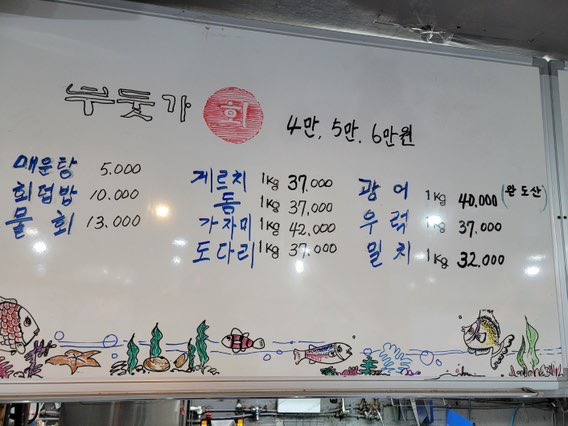 뿌듯가 회 4만, 5만, 6만원
매운탕 5.000
회덥밥 10.000
물회 13.000
게르치 1Kg 37.000
돔 1Kg 37,000
가자미 1Kg 42,000
도다리 1Kg 37.000
광어 1Kg 40,000 (완도산)
우럭 1Kg 37.000
밀치 1Kg 32.000